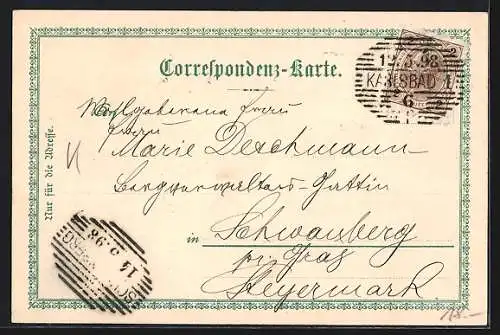 Correspondenz-Karte.
12 5 98
KARLSBAD 1
6
Wohlgeborene Frau
Frau
Marie Deschmann
Bergverwalters-Gattin
in Schwanberg
pr. Graz
Steyermark
Nur für die Adresse.
98
18.-